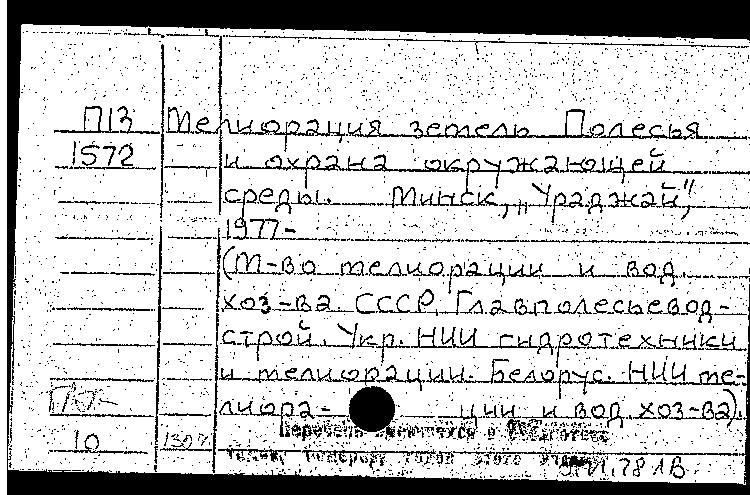 П13 Мелиорация земель Полесья
1572 и охрана окружающей
среды. Минск, „Ураджай",
1977-
(М-во мелиорации и вод.
хоз-ва СССР. Главполесьевод-
строй. Укр. НИИ гидротехники
и мелиорации. Белорус. НИИ ме-
лиора- ции и вод. хоз-ва).
10 1307